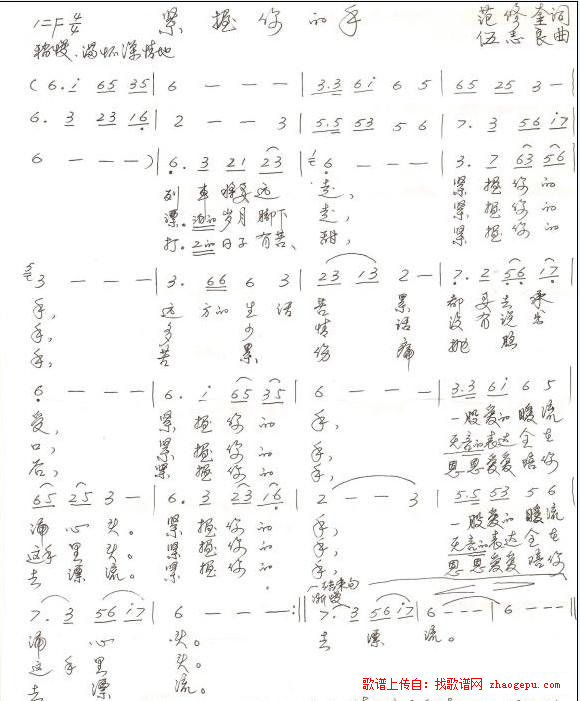 1=F 4/4 紧握你的手 范修奎词
伍志良曲
稍慢、满怀深情地
(6. i 65 35 | 6 - - - | 3.3 6i 6 5 | 65 25 3 - |
6. 3 23 16 | 2 - - 3 | 5.5 53 5 6 | 7. 3 56 i7 |
6 - - -) | 6. 3 21 23 | 6 - - - | 3. 7 63 56 |
列车将要远 走, 紧握你的
漂泊的岁月脚下 走, 紧握你的
打工的日子有苦、 甜, 紧握你的
3 - - - | 3. 66 6 3 | 23 13 2 - | 7. 2 56 i7 |
手, 远方的生活 苦 累 都要去承
手, 多 少 情 话 没有说出
手, 苦 累 伤 痛 抛 脑
6 - - - | 6. i 65 35 | 6 - - - | 3.3 6i 6 5 |
受, 紧握你的 手, 一股爱的暖流
口, 紧握你的 手, 无言的表达全在
后, 紧握你的 手, 恩恩爱爱陪你
65 25 3 - | 6. 3 23 16 | 2 - - 3 | 5.5 53 5 6 |
涌心头。 紧握你的 手, 一股爱的暖流
这手里头。 紧握你的 手, 无言的表达全在
去漂流。 紧握你的 手, 恩恩爱爱陪你
结束句
渐慢
7. 3 56 i7 | 6 - - - :|| 7. 3 56 i7 | 6 - - - | 6 - - - ||
涌心 头。 去漂 流。
这手里 头。
去漂 流。
歌谱上传自：找歌谱网 zhaogepu.com